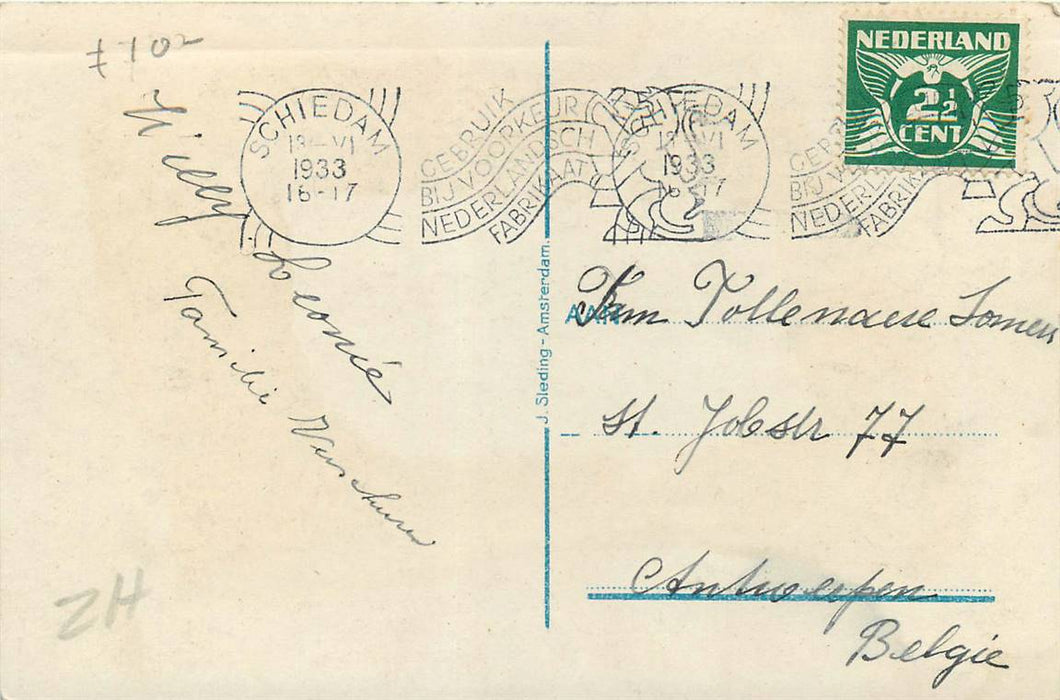 7702
NEDERLAND
2½
CENT
SCHIEDAM
13-VI
1933
16-17
GEBRUIK
BIJ VOORKEUR
NEDERLANDSCH
FABRIKAAT
SCHIEDAM
13-VI
1933
16-17
GEBRUIK
BIJ VOORKEUR
NEDERLANDSCH
FABRIKAAT
Willy
Leonie
Familie Verschuren
J. Sleding - Amsterdam.
AAN
Fam Tollenaere Somers
St. Jobstr 77
Antwerpen
Belgie
ZH